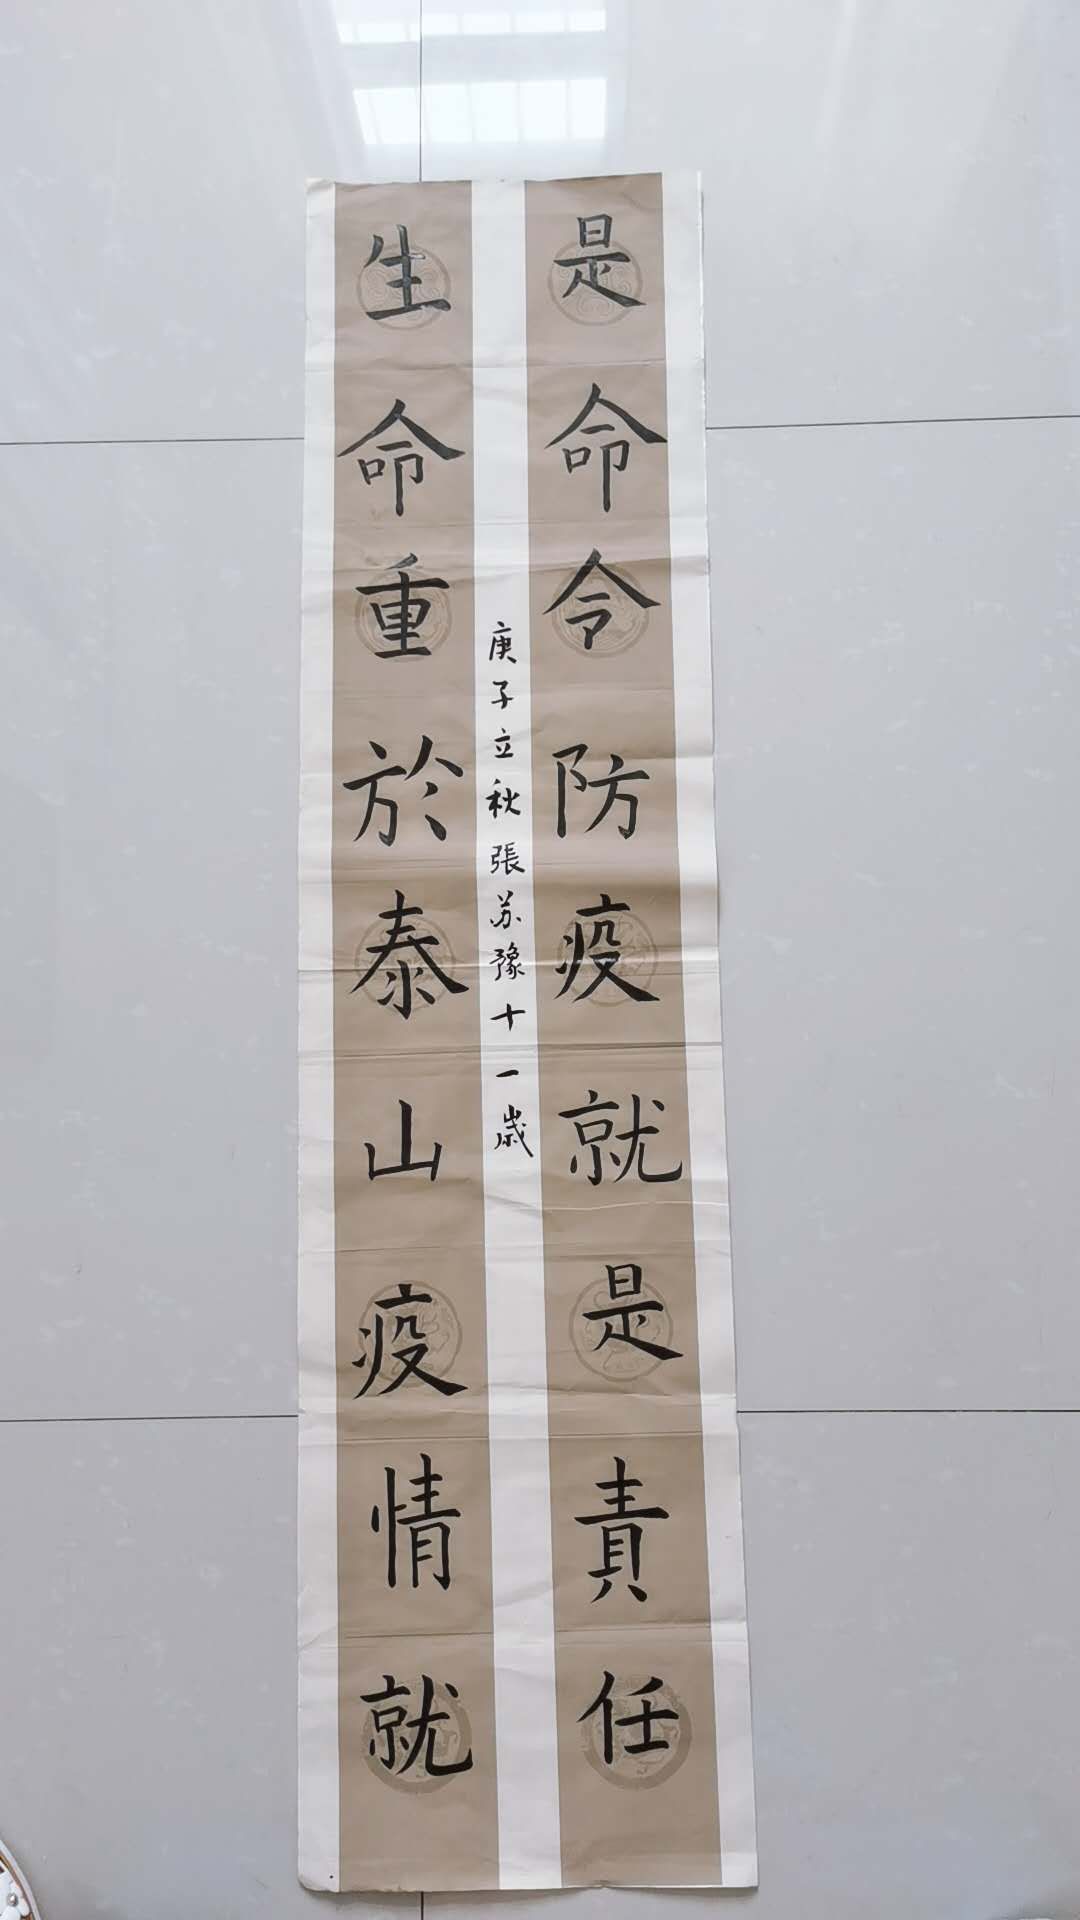 生命重於泰山疫情就
是命令防疫就是責任
庚子立秋張苏豫十一歲